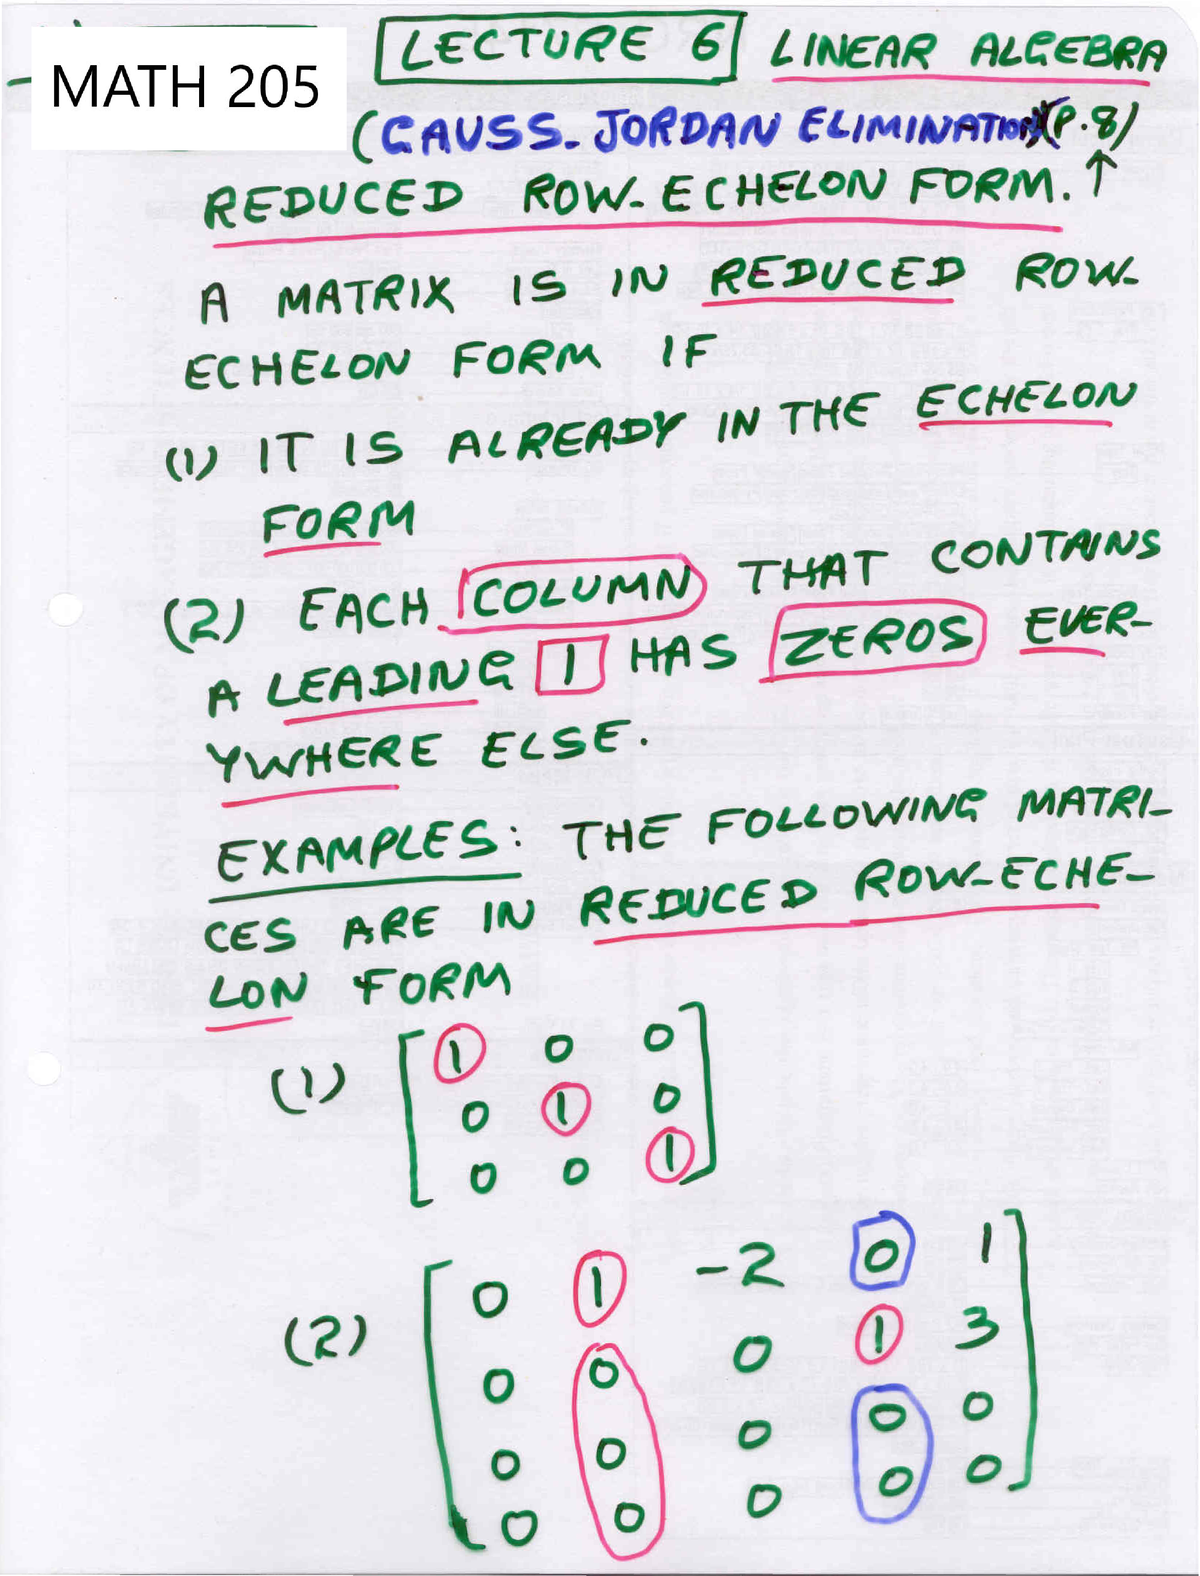 MATH 205
LECTURE 6 LINEAR ALGEBRA
(GAUSS-JORDAN ELIMINATION (P.8)
REDUCED ROW-ECHELON FORM. ↑
A MATRIX IS IN REDUCED ROW-
ECHELON FORM IF
(1) IT IS ALREADY IN THE ECHELON
FORM
(2) EACH COLUMN THAT CONTAINS
A LEADING 1 HAS ZEROS EVER-
YWHERE ELSE.
EXAMPLES: THE FOLLOWING MATRI-
CES ARE IN REDUCED ROW-ECHE-
LON FORM
(1)
1 0 0
0 1 0
0 0 1
(2)
0 1 -2 0 1
0 0 0 1 3
0 0 0 0 0
0 0 0 0 0